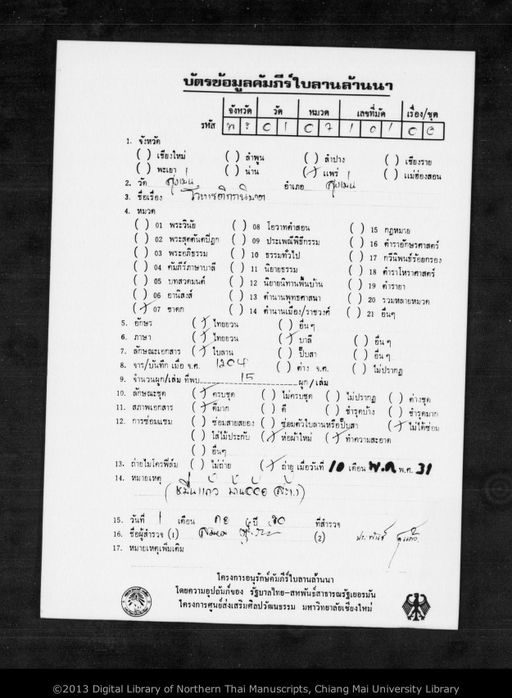 บัตรข้อมูลคัมภีร์ใบลานล้านนา
จังหวัด วัด หมวด เลขที่มัด เรื่อง/ชุด
รหัส
1. จังหวัด
( ) เชียงใหม่ ( ) ลำพูน ( ) ลำปาง ( ) เชียงราย
( ) พะเยา ( ) น่าน (/) แพร่ ( ) แม่ฮ่องสอน
2. วัด สูงเม่น อำเภอ สูงเม่น
3. ชื่อเรื่อง
4. หมวด
( ) 01 พระวินัย ( ) 08 โอวาทคำสอน ( ) 15 กฎหมาย
( ) 02 พระสุตตันตปิฎก ( ) 09 ประเพณีพิธีกรรม ( ) 16 ตำราอักษรศาสตร์
( ) 03 พระอภิธรรม ( ) 10 ธรรมทั่วไป ( ) 17 กวีนิพนธ์ร้อยกรอง
( ) 04 คัมภีร์ภาษาบาลี ( ) 11 นิยายธรรม ( ) 18 ตำราโหราศาสตร์
( ) 05 บทสวดมนต์ ( ) 12 นิยายนิทานพื้นบ้าน ( ) 19 ตำรายา
( ) 06 อานิสงส์ ( ) 13 ตำนานพุทธศาสนา ( ) 20 รวมหลายหมวด
(/) 07 ชาดก ( ) 14 ตำนานเมือง/ราชวงศ์ ( ) 21 อื่นๆ
5. อักษร (/) ไทยยวน ( ) อื่นๆ
6. ภาษา (/) ไทยยวน (/) บาลี ( ) อื่นๆ
7. ลักษณะเอกสาร (/) ใบลาน ( ) ปั๊บสา ( ) อื่นๆ
8. จาร/บันทึก เมื่อ จ.ศ. 1204 ( ) ต่าง จ.ศ. ( ) ไม่ปรากฏ
9. จำนวนผูก/เล่ม ที่พบ 15 ผูก/เล่ม
10. ลักษณะชุด (/) ครบชุด ( ) ไม่ครบชุด ( ) ไม่ปรากฏ ( ) ต่างชุด
11. สภาพเอกสาร (/) ดีมาก ( ) ดี ( ) ชำรุดบ้าง ( ) ชำรุดมาก
12. การซ่อมแซม ( ) ซ่อมสายสยอง ( ) ซ่อมตัวใบลานหรือปั๊บสา (/) ไม่ได้ซ่อม
( ) ใส่ไม้ประกับ (/) ห่อผ้าใหม่ (/) ทำความสะอาด
( ) อื่นๆ
13. ถ่ายไมโครฟิล์ม ( ) ไม่ถ่าย (/) ถ่าย เมื่อวันที่ 10 เดือน พ.ค. พ.ศ. 31
14. หมายเหตุ
15. วันที่ 1 เดือน ปี 30 ที่สำรวจ
16. ชื่อผู้สำรวจ (1) (2)
17. หมายเหตุเพิ่มเติม
โครงการอนุรักษ์คัมภีร์ใบลานล้านนา
โดยความอุปถัมภ์ของ รัฐบาลไทย-สหพันธ์สาธารณรัฐเยอรมัน
โครงการศูนย์ส่งเสริมศิลปวัฒนธรรม มหาวิทยาลัยเชียงใหม่
©2013 Digital Library of Northern Thai Manuscripts, Chiang Mai University Library